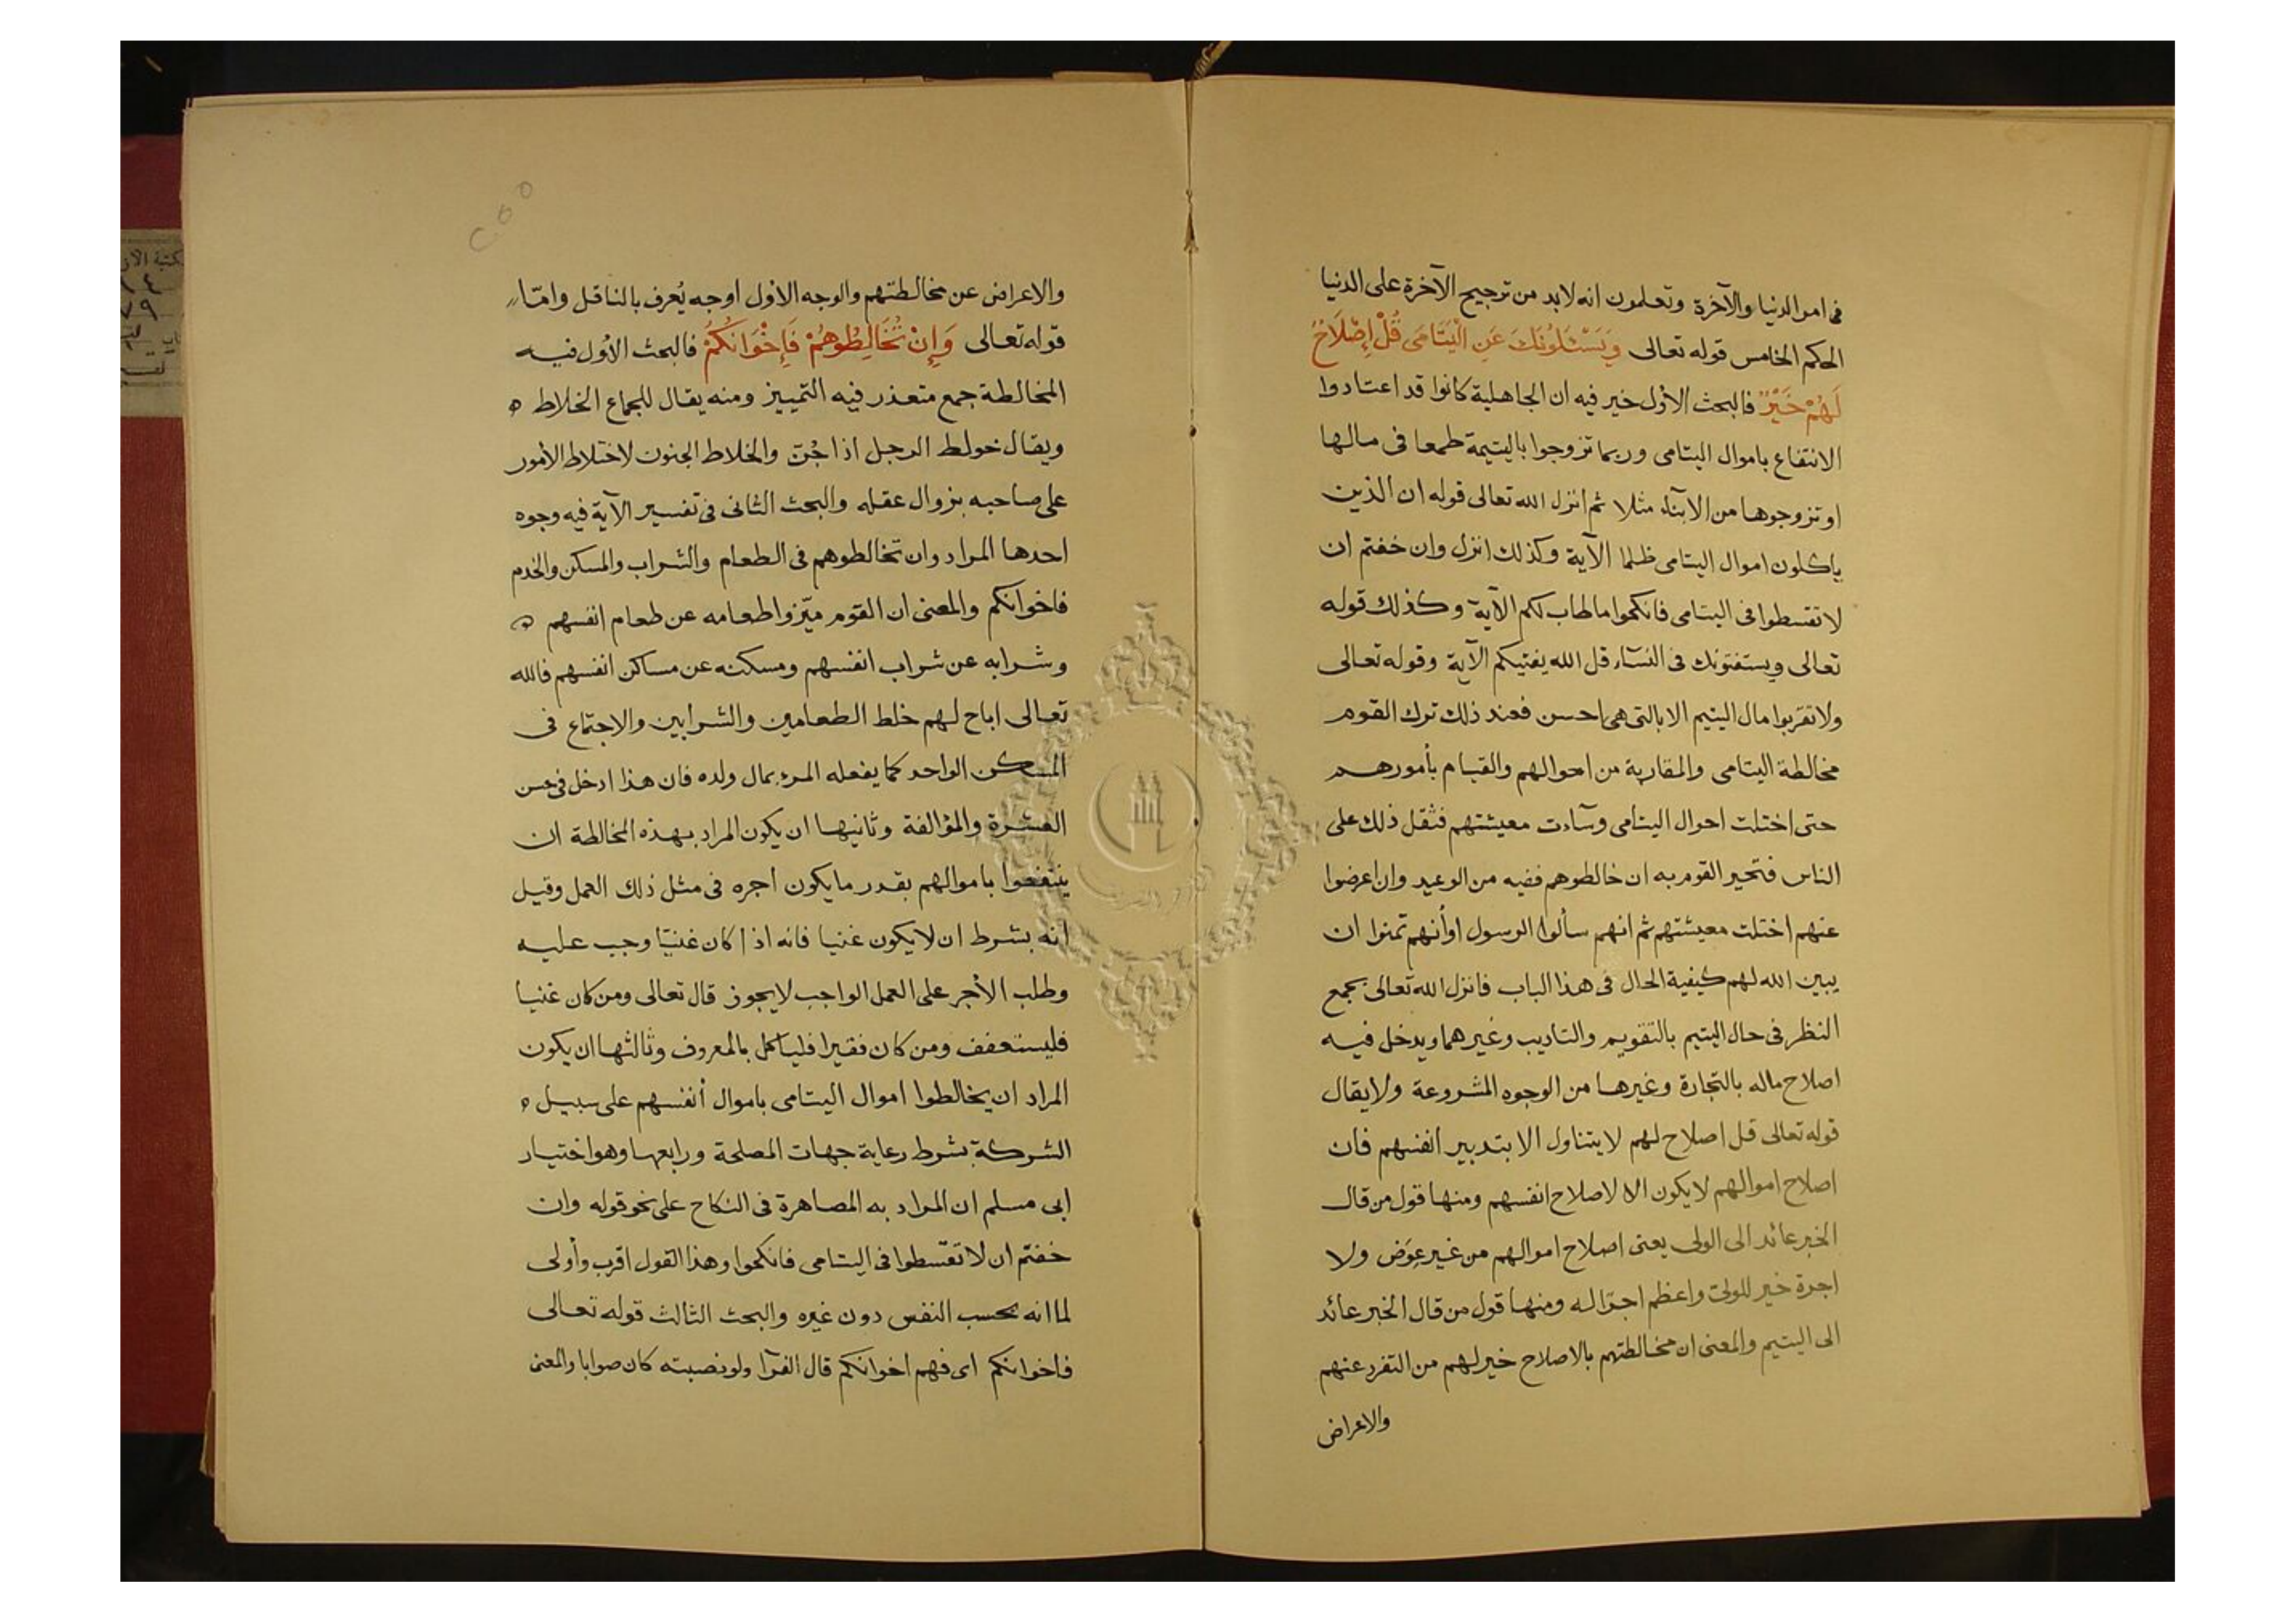 فى امر الدنيا والآخرة وتعلمون انه لابد من ترجيح الآخرة على الدنيا
الحكم الخامس قوله تعالى وَيَسْئَلُونَكَ عَنِ الْيَتَامَى قُلْ إِصْلَاحٌ
لَهُمْ خَيْرٌ فالبحث الأول خير فيه ان الجاهلية كانوا قد اعتادوا
الانتفاع باموال اليتامى وربما تزوجوا باليتيمة طمعا فى مالها
او تزوجوها من الابناء مثلا ثم انزل الله تعالى قوله ان الذين
ياكلون اموال اليتامى ظلما الآية وكذلك انزل وان خفتم ان
لا تقسطوا فى اليتامى فانكحوا ما طاب لكم الآية وكذلك قوله
تعالى ويستفتونك فى النسآء قل الله يفتيكم الآية وقوله تعالى
ولا تقربوا مال اليتيم الا بالتى هى احسن فعند ذلك ترك القوم
مخالطة اليتامى والمقاربة من احوالهم والقيام بأمورهم
حتى اختلت احوال اليتامى وسآءت معيشتهم فثقل ذلك على
الناس فتحير القوم به ان خالطوهم ففيه من الوعيد وان اعرضوا
عنهم اختلت معيشتهم ثم انهم سألوا الرسول اوأنهم تمنوا ان
يبين الله لهم كيفية الحال فى هذا الباب فانزل الله تعالى بجمع
النظر فى حال اليتيم بالتقويم والتاديب وغيرهما ويدخل فيه
اصلاح ماله بالتجارة وغيرها من الوجوه المشروعة ولا يقال
قوله تعالى قل اصلاح لهم لا يتناول الا بتدبير انفسهم فان
اصلاح اموالهم لا يكون الا لاصلاح انفسهم ومنها قول من قال
الخبر عائد الى الولى يعنى اصلاح اموالهم من غير عوض ولا
اجرة خير للولى واعظم اجرا له ومنها قول من قال الخبر عائد
الى اليتيم والمعنى ان مخالطتهم بالاصلاح خير لهم من التفرد عنهم
والاعراض
والاعراض عن مخالطتهم والوجه الأول اوجه يُعرف بالناقل وامّا
قوله تعالى وَإِنْ تُخَالِطُوهُمْ فَإِخْوَانُكُمْ فالبحث الأول فيه
المخالطة جمع متعذر فيه التمييز ومنه يقال للجماع الخلاط
ويقال خولط الرجل اذا جُنّ والخلاط الجنون لاختلاط الأمور
على صاحبه بزوال عقله والبحث الثانى فى تفسير الآية فيه وجوه
احدها المراد وان تخالطوهم فى الطعام والشراب والمسكن والخدم
فاخوانكم والمعنى ان القوم ميّزوا طعامه عن طعام انفسهم
وشرابه عن شراب انفسهم ومسكنه عن مساكن انفسهم فالله
تعالى اباح لهم خلط الطعامين والشرابين والاجتماع فى
المسكن الواحد كما يفعله المرء بمال ولده فان هذا ادخل فى حسن
العشرة والمؤالفة وثانيها ان يكون المراد بهذه المخالطة ان
ينتفعوا باموالهم بقدر ما يكون اجره فى مثل ذلك العمل وقيل
انه بشرط ان لا يكون غنيا فانه اذا كان غنيّا وجب عليه
وطلب الأجر على العمل الواجب لا يجوز قال تعالى ومن كان غنيا
فليستعفف ومن كان فقيرا فليأكل بالمعروف وثالثها ان يكون
المراد ان يخالطوا اموال اليتامى باموال أنفسهم على سبيل
الشركة بشرط رعاية جهات المصلحة ورابعها وهو اختيار
ابى مسلم ان المراد به المصاهرة فى النكاح على نحو قوله وان
خفتم ان لا تقسطوا فى اليتامى فانكحوا وهذا القول اقرب وأولى
لما انه بحسب النفس دون غيره والبحث الثالث قوله تعالى
فاخوانكم اى فهم اخوانكم قال الفرّآ ولو نصبته كان صوابا والمعنى